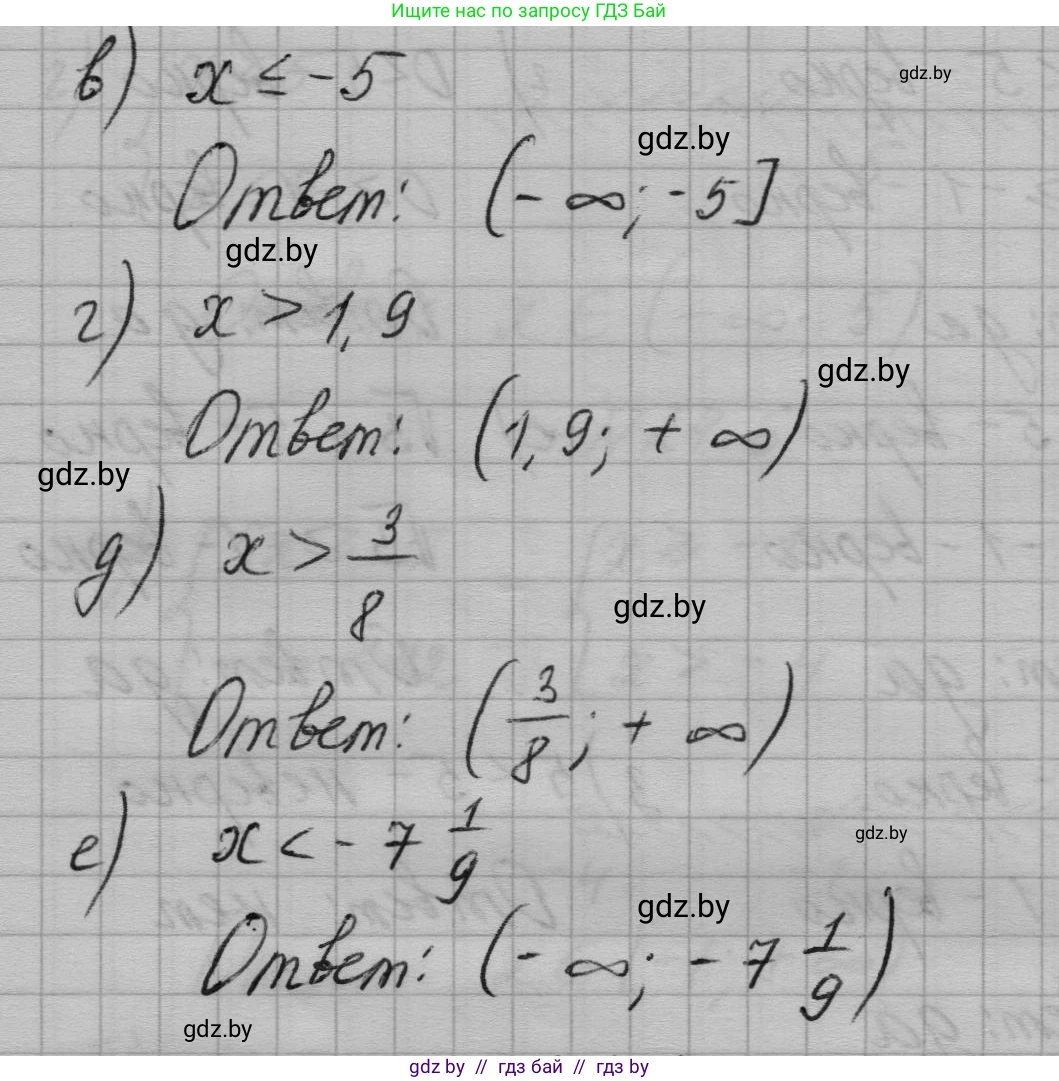 Ищите нас по запросу ГДЗ Бай
в) x ≤ -5
gdz.by
gdz.by
Ответ: (-∞; -5]
gdz.by
г) x > 1,9
gdz.by
Ответ: (1,9; +∞)
gdz.by
д) x > 3/8
gdz.by
Ответ: (3/8; +∞)
е) x < -7 1/9
gdz.by
gdz.by
Ответ: (-∞; -7 1/9)
gdz.by
gdz by // гдз бай // гдз by